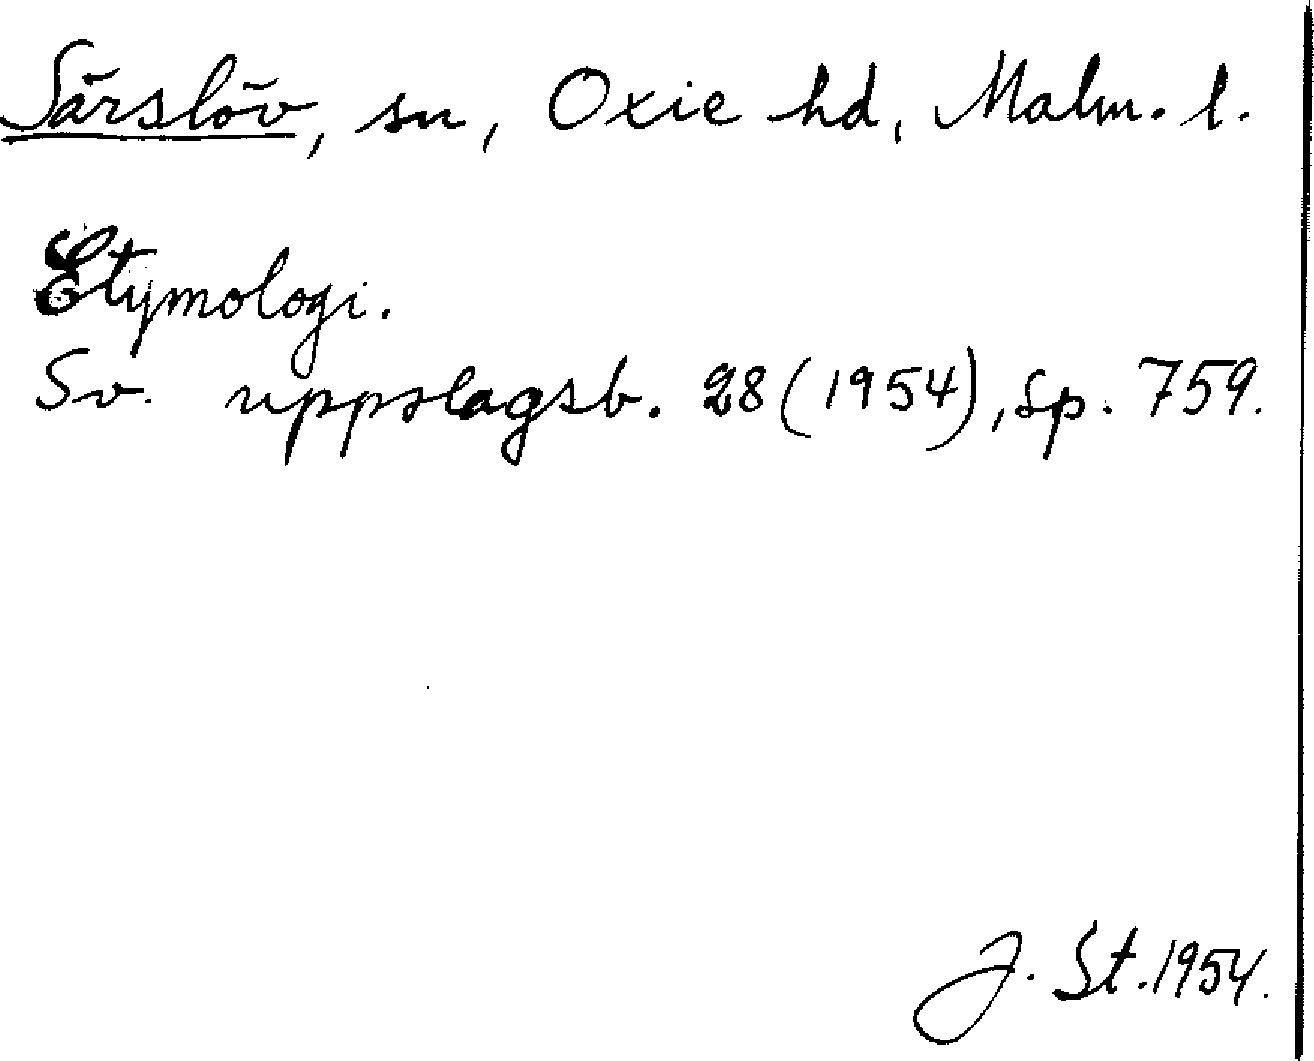 Särslöv, sn, Oxie hd, Malm. l.
Etymologi.
Sv. uppslagsb. 28 (1954), sp. 759.
J. St. 1954.